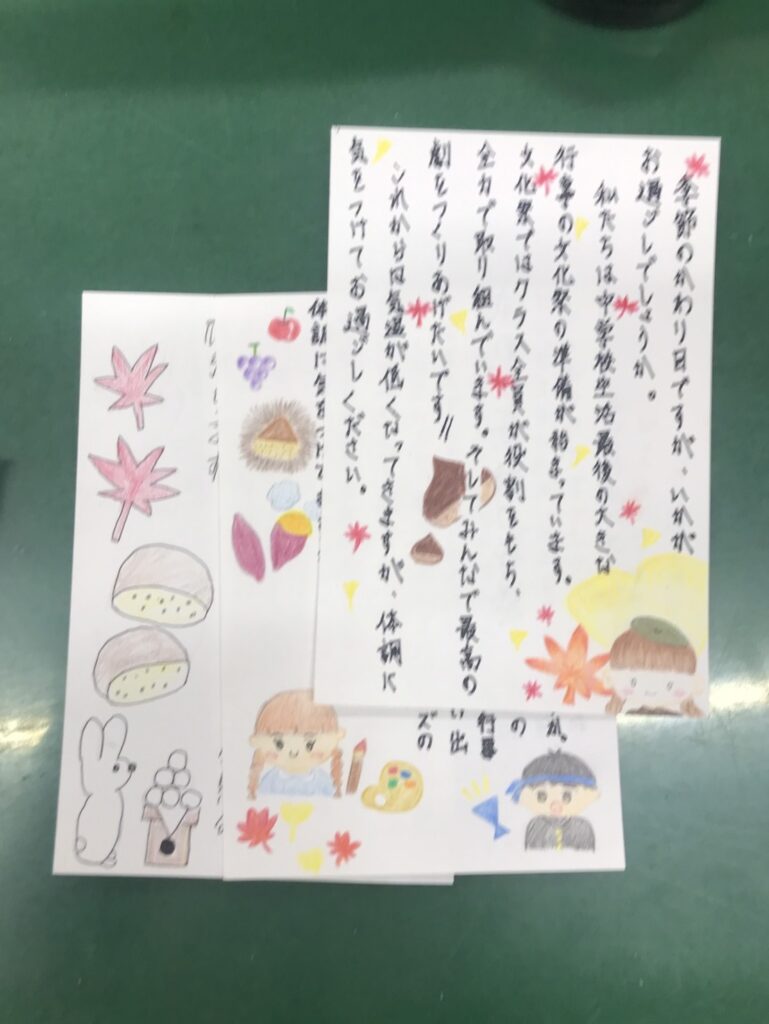 季節のかわり目ですが、いかが
お過ごしでしょうか。
私たちは中学校生活最後の大きな
行事の文化祭の準備が始まっています。
文化祭ではクラス全員が役割をもち、
全力で取り組んでいます。そしてみんなで最高の
劇をつくりあげたいです!!
これからは気温が低くなってきますが、体調に
気をつけてお過ごしください。
か。
の
行事
い出
ズの
体調に気を